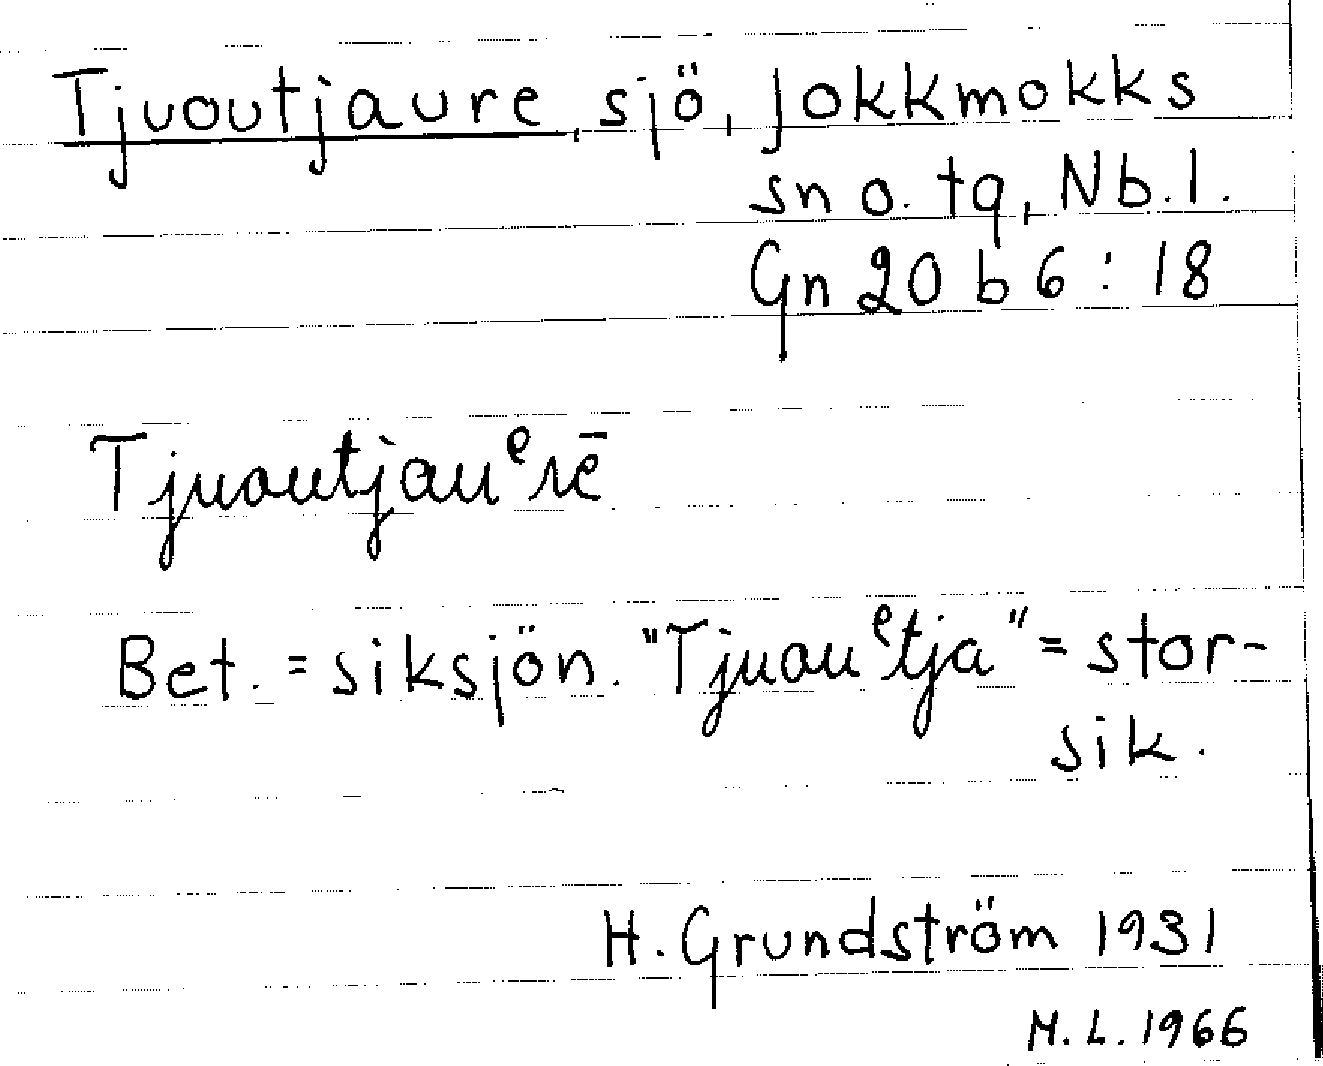 Tjuoutjaure, sjö, Jokkmokks
sn o. tg, Nb. l.
Gn 20 b 6 : 18
Tjuoutjauᵉrē
Bet. = siksjön. "Tjuouᵉtja" = stor-
sik.
H. Grundström 1931
M. L. 1966